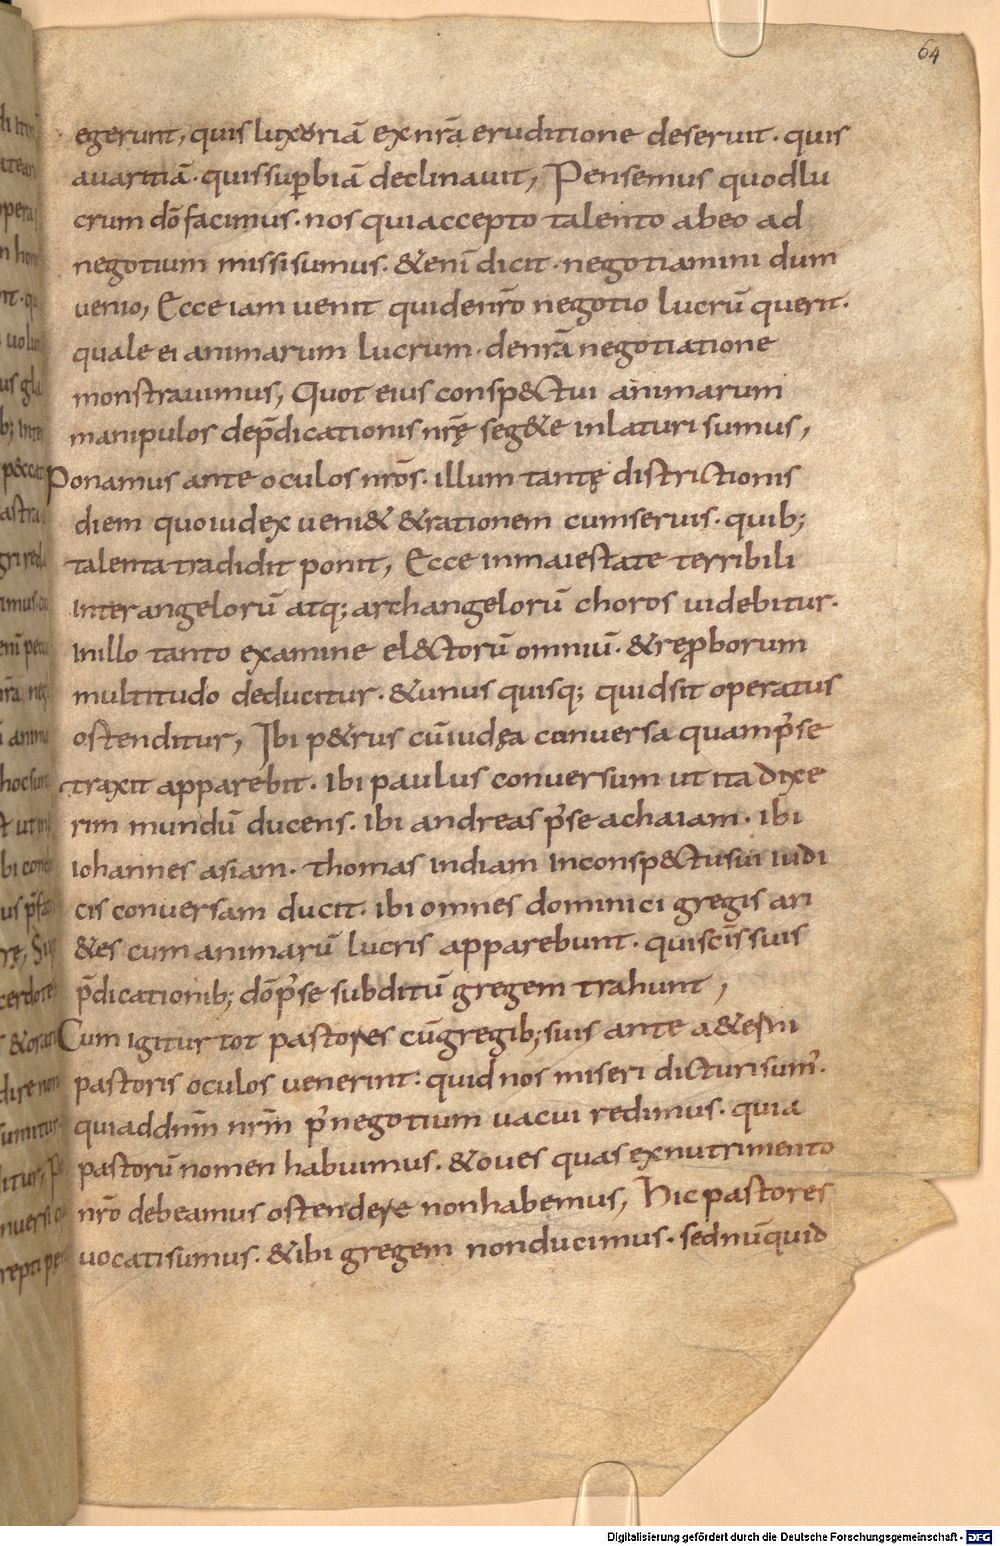 64
egerunt, quis luxoriā ex nr̄a eruditione deseruit · quis
auaritiā · quis sup̱biā declinauit, Pensemus quod lu
crum dō facimus · nos qui accepto talento ab eo ad
negotium missi sumus · & eni̅ dicit · negotiamini dum
uenio, Ecce iam uenit quid e nr̄o negotio lucrū querit ·
quale ei animarum lucrum · de nr̄a negotiatione
monstrauimus, Quot eius consp&ctui animarum
manipulos de p̄dicationis nr̄ę seg&e inlaturi sumus,
Ponamus ante oculos nr̄os · illum tantę districtionis
diem quo iudex ueni& & rationem cum seruis · quib;
talenta tradidit ponit, Ecce in maiestate terribili
inter angelorū atq; archangelorū choros uidebitur ·
In illo tanto examine el&ctorū omniū · & rep̱borum
multitudo deducitur · & unus quisq; quid sit operatus
ostenditur, Ibi p&rus cū iudęa conuersa quam p̓ se
traxit apparebit · Ibi paulus conuersum ut ita dixe
rim mundū ducens · Ibi andreas p̓ se achaiam · Ibi
iohannes asiam · thomas indiam in consp&ctu sui iudi
cis conuersam ducit · ibi omnes dominici gregis ari
&es cum animarū lucris apparebunt · qui sc̄is suis
p̄dicationib; dō p̓ se subditū gregem trahunt,
Cum igitur tot pastores cū gregib; suis ante a&erni
pastoris oculos uenerint : quid nos miseri dicturi sum̓ ·
qui ad dn̄m nr̄m p̓ negotium uacui redimus · quia
pastorū nomen habuimus · & oues quas ex nutrimento
nr̄o debeamus ostendere non habemus, Hic pastores
uocati sumus · & ibi gregem non ducimus · sed nūquid
Digitalisierung gefördert durch die Deutsche Forschungsgemeinschaft - DFG